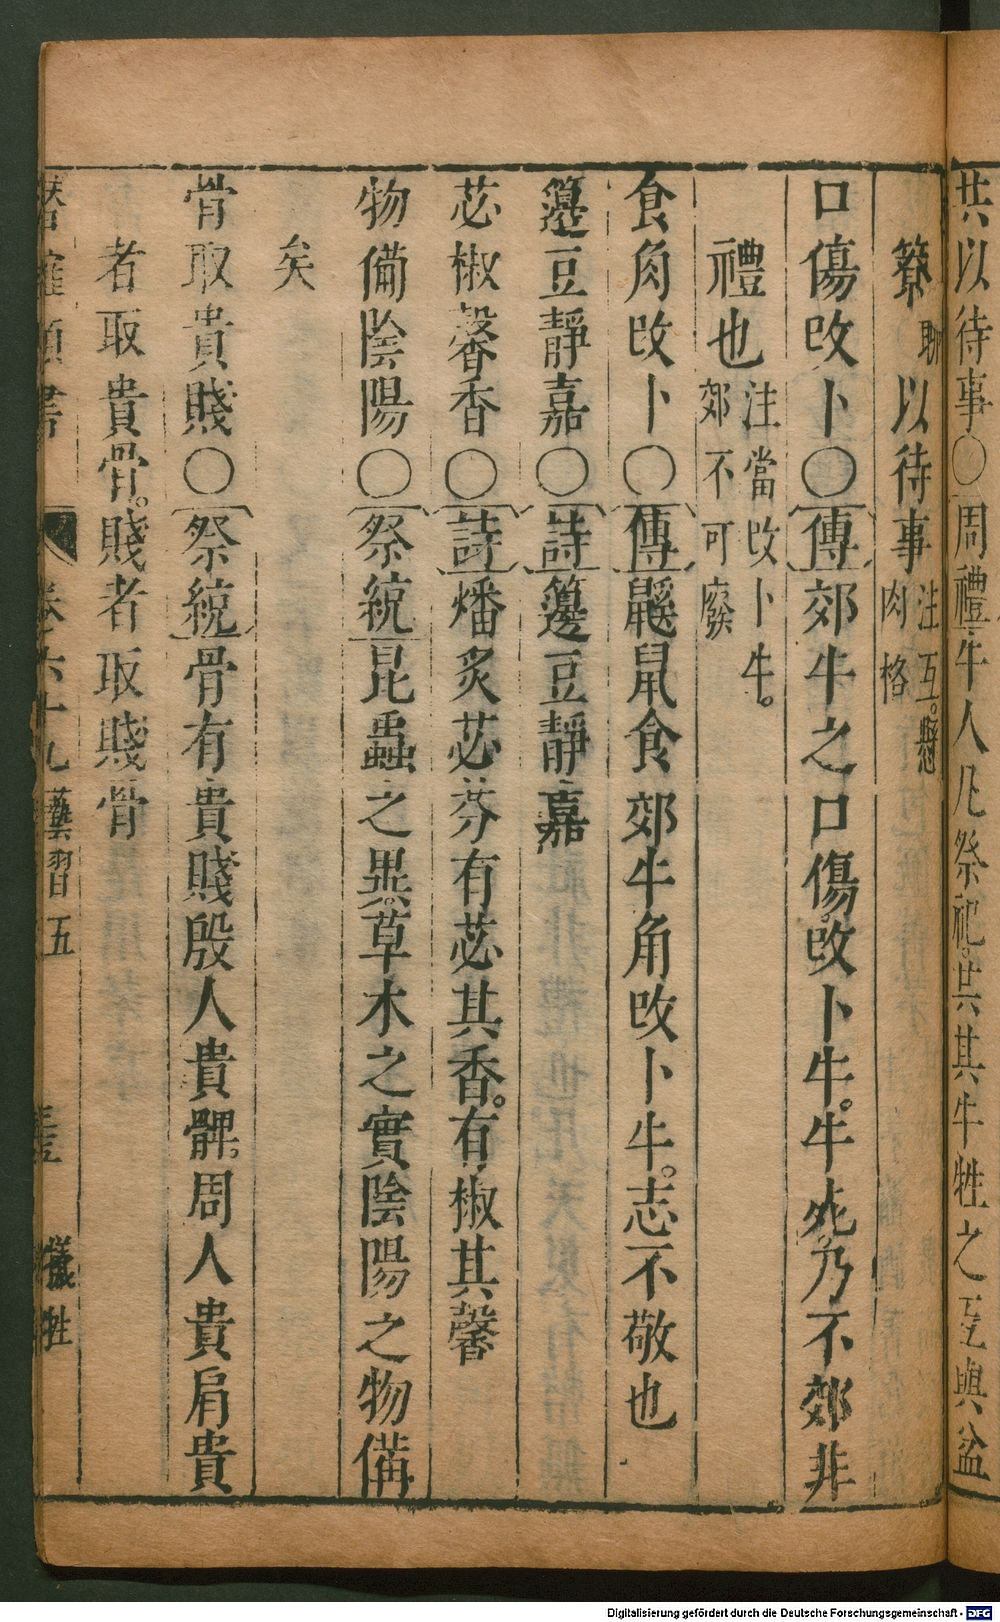 共以待事○周禮牛人凡祭祀。共其牛牲之互與盆
簝聊以待事注互。懸肉格
口傷改卜○傳郊牛之口傷。改卜牛。牛死乃不郊非
禮也注當改卜牛。郊不可廢
食角改卜○傳鼷鼠食郊牛角改卜牛。志不敬也
籩豆靜嘉○詩籩豆靜嘉
苾椒馨香○詩燔炙苾芬有苾其香。有椒其馨
物備陰陽○祭統昆蟲之異。草木之實陰陽之物備
矣
骨取貴賤○祭統骨有貴賤殷人貴髀。周人貴肩貴
者取貴骨。賤者取賤骨
卷六十九 藝習五 犧牲
Digitalisierung gefördert durch die Deutsche Forschungsgemeinschaft - DFG